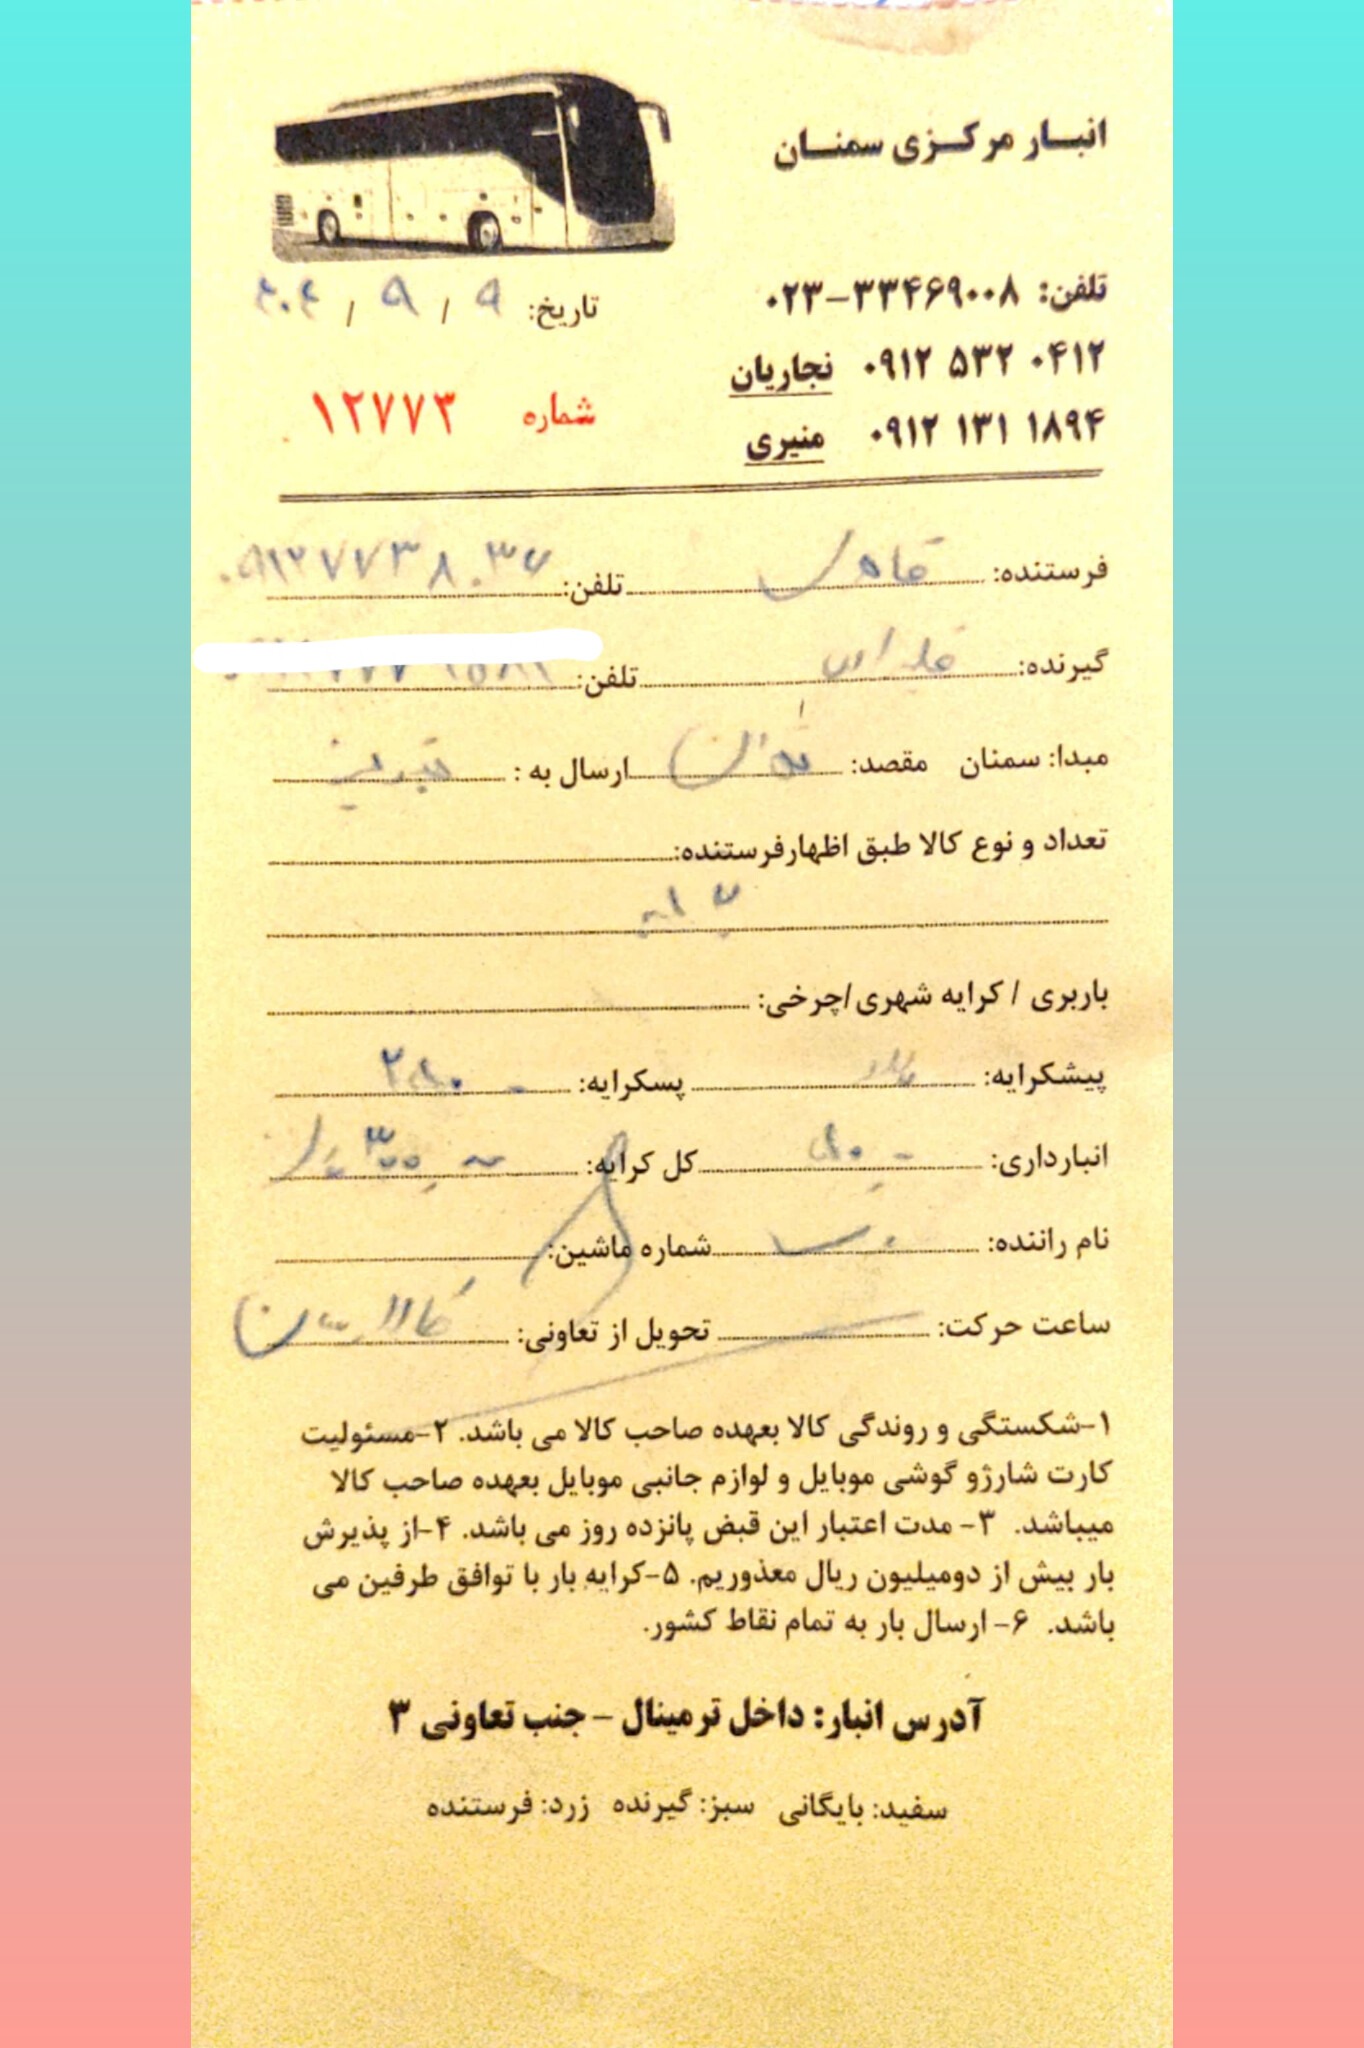 انبار مرکزی سمنان
تلفن: ۰۲۳-۳۳۴۶۹۰۰۸
تاریخ: ۹ / ۹ /
۰۹۱۲ ۵۳۲ ۰۴۱۲ نجاریان
شماره ۱۲۷۷۳
۰۹۱۲ ۱۳۱ ۱۸۹۴ منیری
فرستنده: تلفن:
گیرنده: تلفن:
مبدا: سمنان مقصد: تهران ارسال به : تبریز
تعداد و نوع کالا طبق اظهارفرستنده:
باربری / کرایه شهری/چرخی:
پیشکرایه: پسکرایه:
انبارداری: کل کرایه:
نام راننده: شماره ماشین:
ساعت حرکت: تحویل از تعاونی:
۱-شکستگی و روندگی کالا بعهده صاحب کالا می باشد. ۲-مسئولیت
کارت شارژو گوشی موبایل و لوازم جانبی موبایل بعهده صاحب کالا
میباشد. ۳- مدت اعتبار این قبض پانزده روز می باشد. ۴-از پذیرش
بار بیش از دومیلیون ریال معذوریم. ۵-کرایه بار با توافق طرفین می
باشد. ۶- ارسال بار به تمام نقاط کشور.
آدرس انبار: داخل ترمینال - جنب تعاونی ۳
سفید: بایگانی سبز: گیرنده زرد: فرستنده